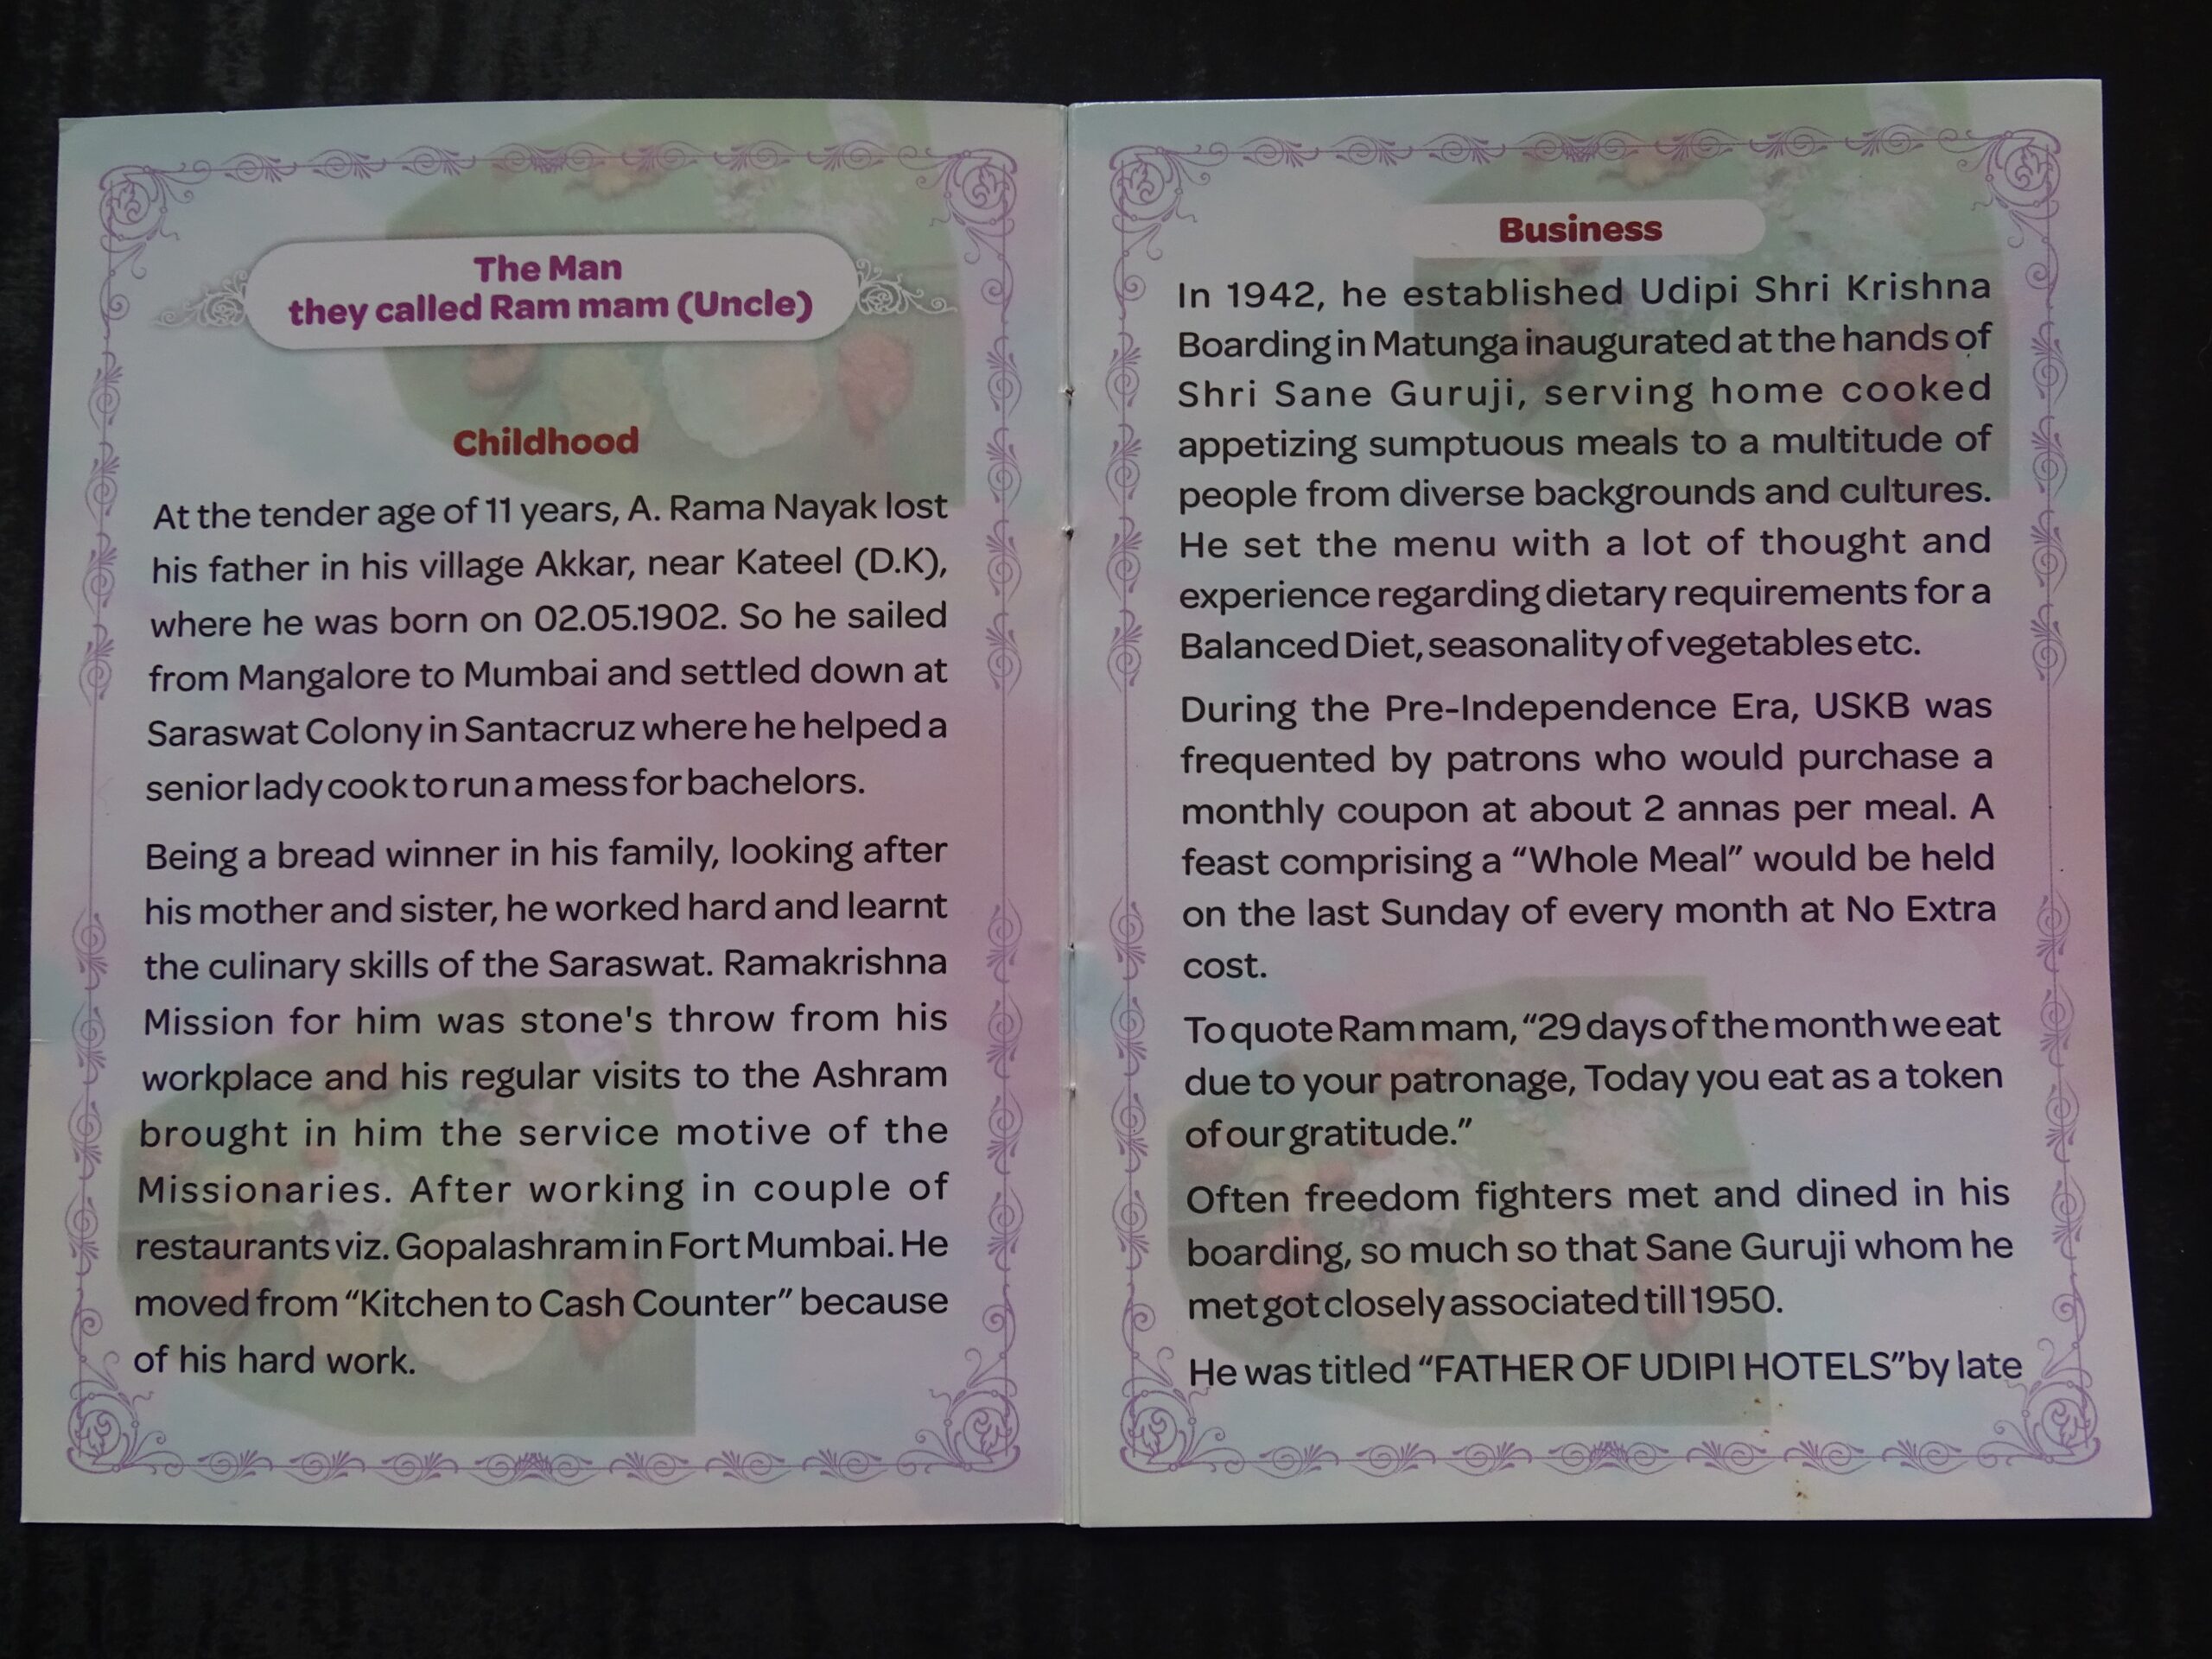 The Man
they called Ram mam (Uncle)
Childhood
At the tender age of 11 years, A. Rama Nayak lost
his father in his village Akkar, near Kateel (D.K),
where he was born on 02.05.1902. So he sailed
from Mangalore to Mumbai and settled down at
Saraswat Colony in Santacruz where he helped a
senior lady cook to run a mess for bachelors.
Being a bread winner in his family, looking after
his mother and sister, he worked hard and learnt
the culinary skills of the Saraswat. Ramakrishna
Mission for him was stone's throw from his
workplace and his regular visits to the Ashram
brought in him the service motive of the
Missionaries. After working in couple of
restaurants viz. Gopalashram in Fort Mumbai. He
moved from “Kitchen to Cash Counter” because
of his hard work.
Business
In 1942, he established Udipi Shri Krishna
Boarding in Matunga inaugurated at the hands of
Shri Sane Guruji, serving home cooked
appetizing sumptuous meals to a multitude of
people from diverse backgrounds and cultures.
He set the menu with a lot of thought and
experience regarding dietary requirements for a
Balanced Diet, seasonality of vegetables etc.
During the Pre-Independence Era, USKB was
frequented by patrons who would purchase a
monthly coupon at about 2 annas per meal. A
feast comprising a “Whole Meal” would be held
on the last Sunday of every month at No Extra
cost.
To quote Ram mam, “29 days of the month we eat
due to your patronage, Today you eat as a token
of our gratitude.”
Often freedom fighters met and dined in his
boarding, so much so that Sane Guruji whom he
met got closely associated till 1950.
He was titled “FATHER OF UDIPI HOTELS”by late